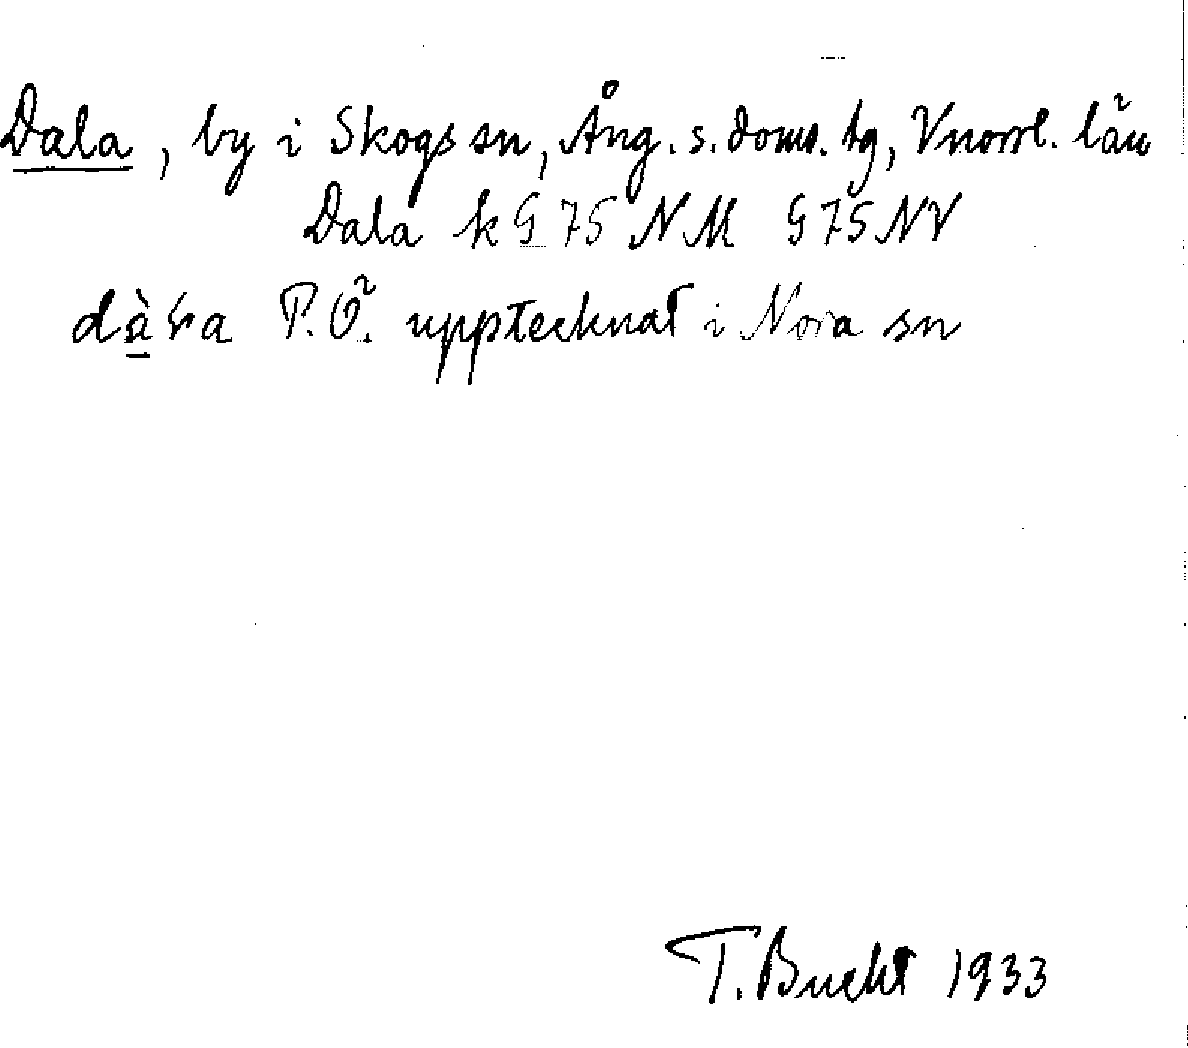 Dala, by i Skogs sn, Ång. s. doms. tg, Vnorrl. län
Dala k G 75 NM G 75 NV
P. Ö. upptecknat i Nora sn
T. Bucht 1933